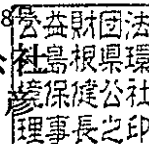 8
公益財団法
社島根県環
境保健公社
彦
理事長之印